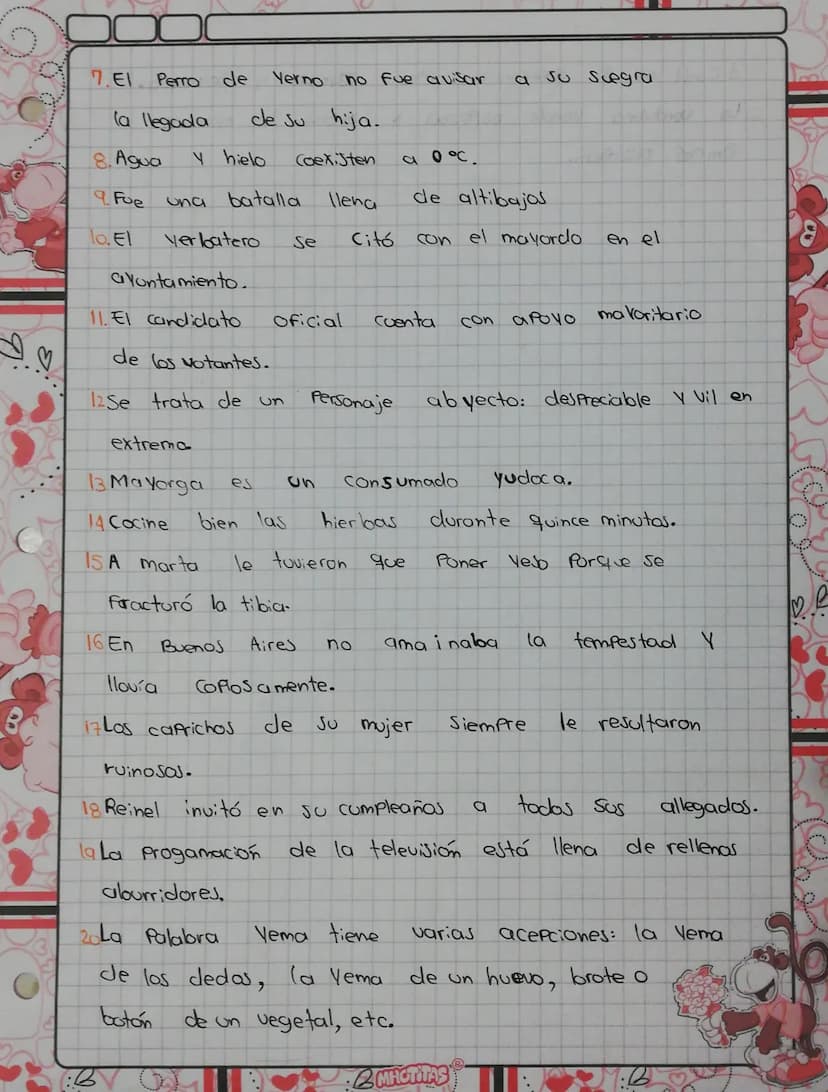 7. El Perro de Yerno no fue avisar a su suegra
la llegada de su hija.
8. Agua y hielo coexisten a 0 °C.
9. Fue una batalla llena de altibajos
10. El yerbatero se citó con el mayordo en el
ayuntamiento.
11. El candidato oficial cuenta con apoyo mayoritario
de los votantes.
12 Se trata de un Personaje abyecto: despreciable y vil en
extremo
13 Mayorga es un consumado yudoca.
14 Cocine bien las hierbas durante quince minutos.
15 A marta le tuvieron que Poner yeso Porque se
fracturó la tibia.
16 En Buenos Aires no amainaba la tempestad y
llovía copiosamente.
17 Los caprichos de su mujer siempre le resultaron
ruinosos.
18 Reinel invitó en su cumpleaños a todos sus allegados.
19 La progamación de la televisión está llena de rellenos
aburridores.
20 La Palabra Yema tiene varias acepciones: la yema
de los dedos, la yema de un huevo, brote o
botón de un vegetal, etc.
MAFOTITAS